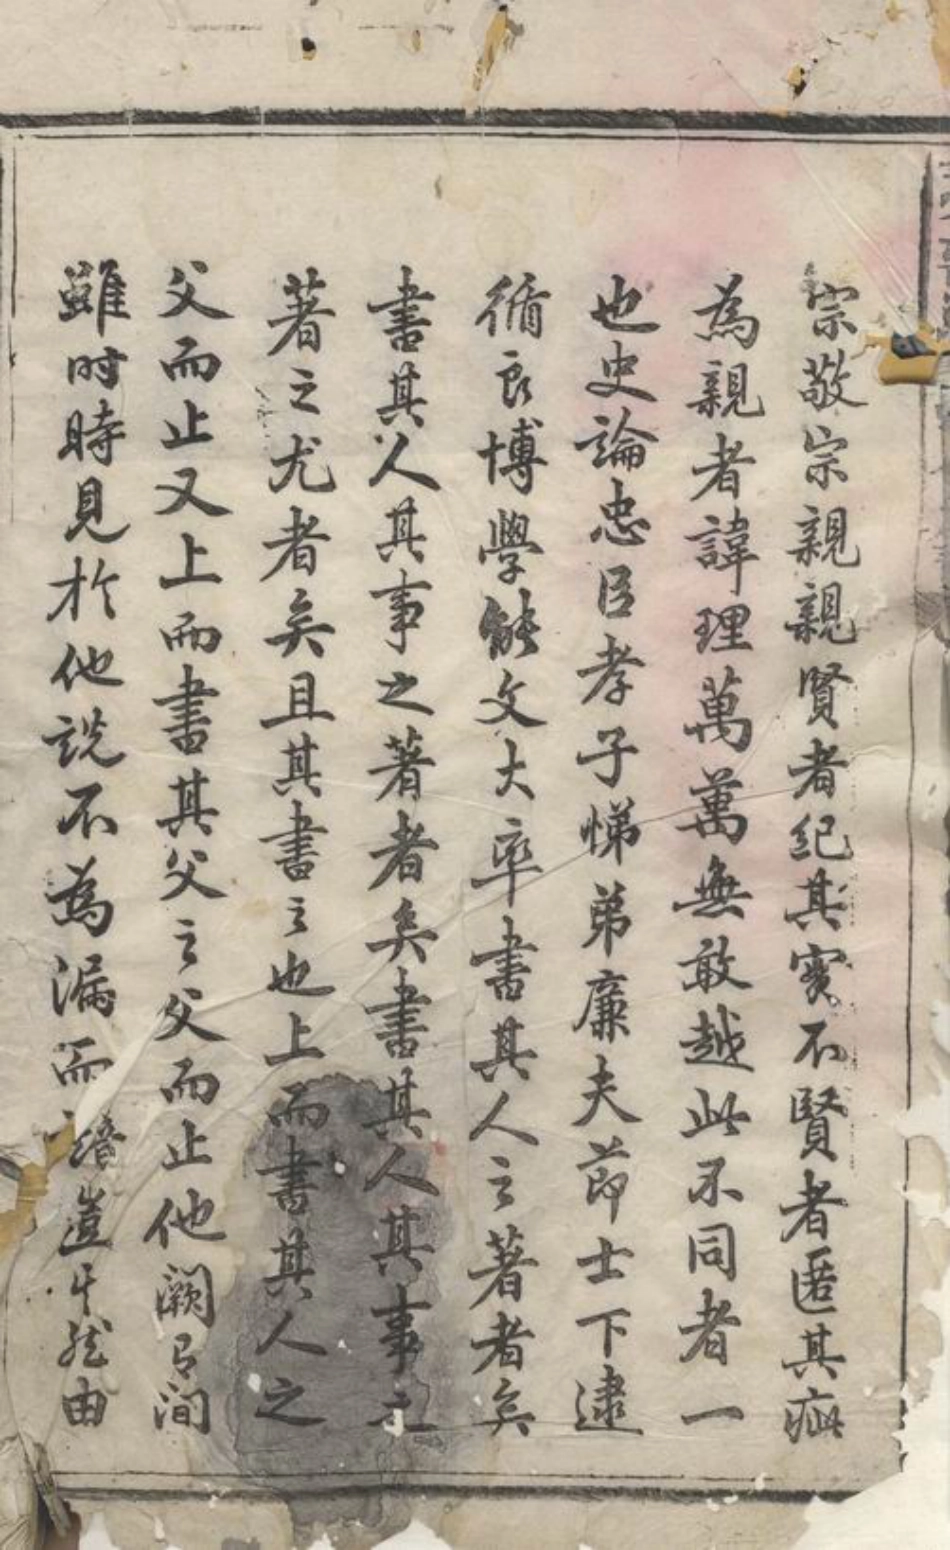 宗敬宗親親賢者紀其實不賢者匿其疵
為親者諱理萬萬無敢越此不同者一
也史論忠臣孝子悌弟廉夫節士下逮
循良博學能文大率書其人之著者矣
書其人其事之著者矣書其人其事之
著之尤者矣且其書之也上而書其人之
父而止又上而書其父之父而止他闕
雖时時見於他說不為漏而豈由